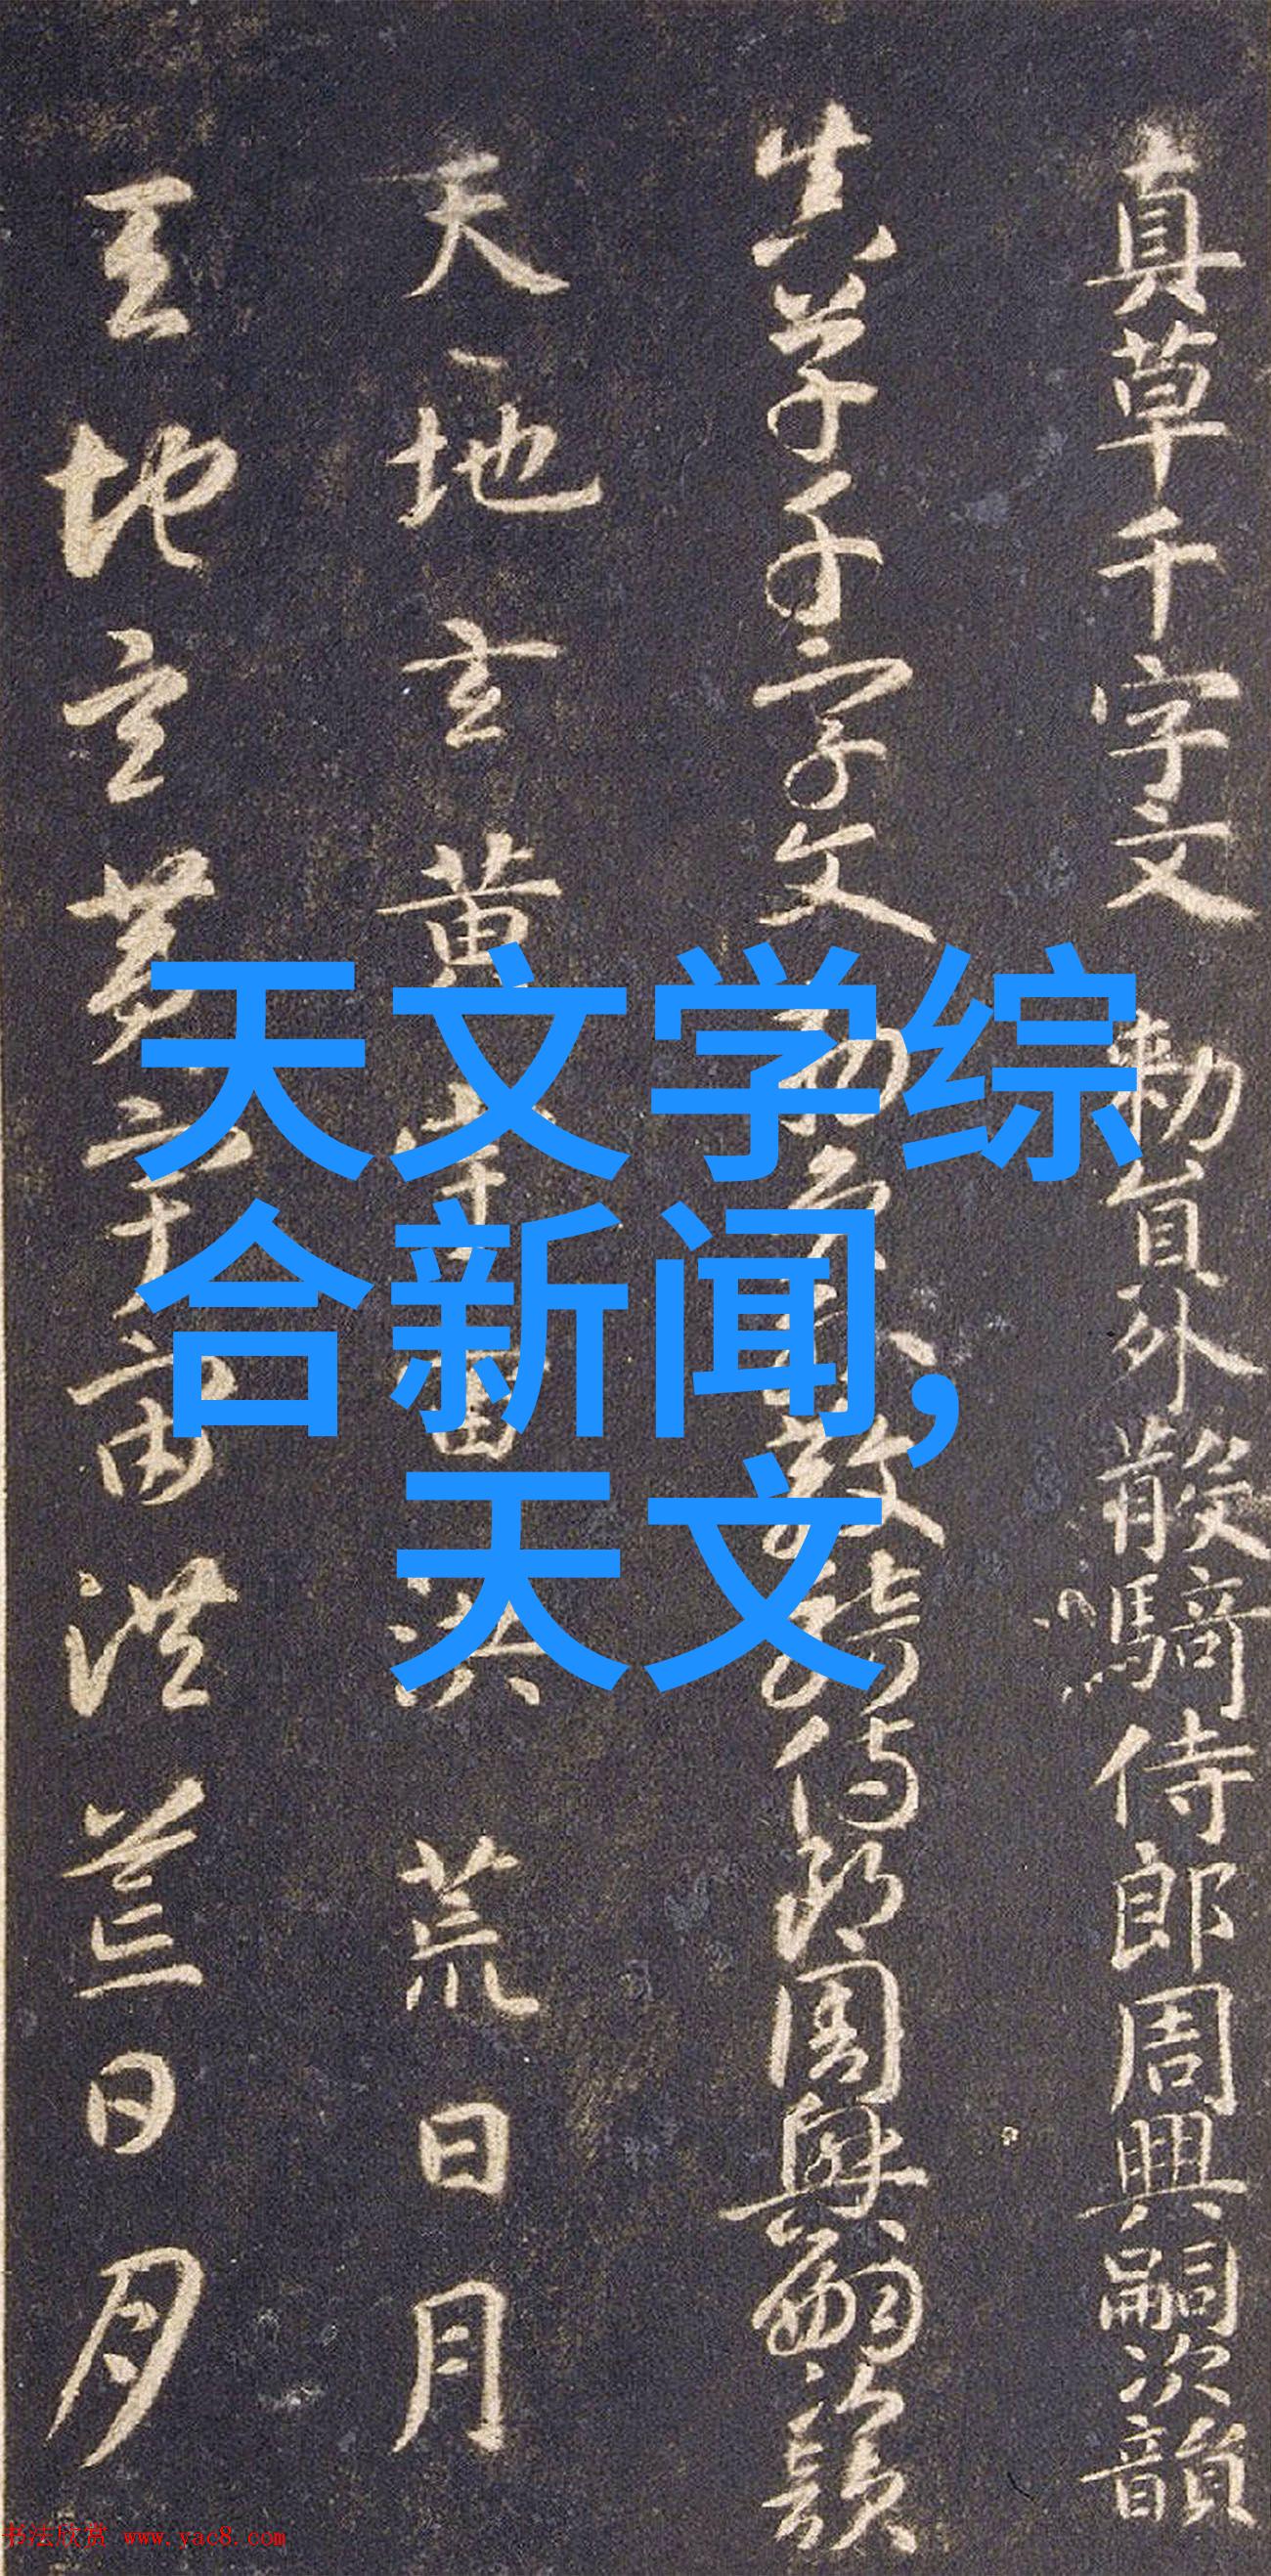 真草千字文 勅員外散騎侍郎周興嗣次韻
真草千字文 勅員外散騎侍郎周興嗣次韻
天地玄黃宇宙洪荒日月
天地玄黃宇宙洪荒日月
天文学综
合新闻,
天文
书法欣赏 www.yac8.com